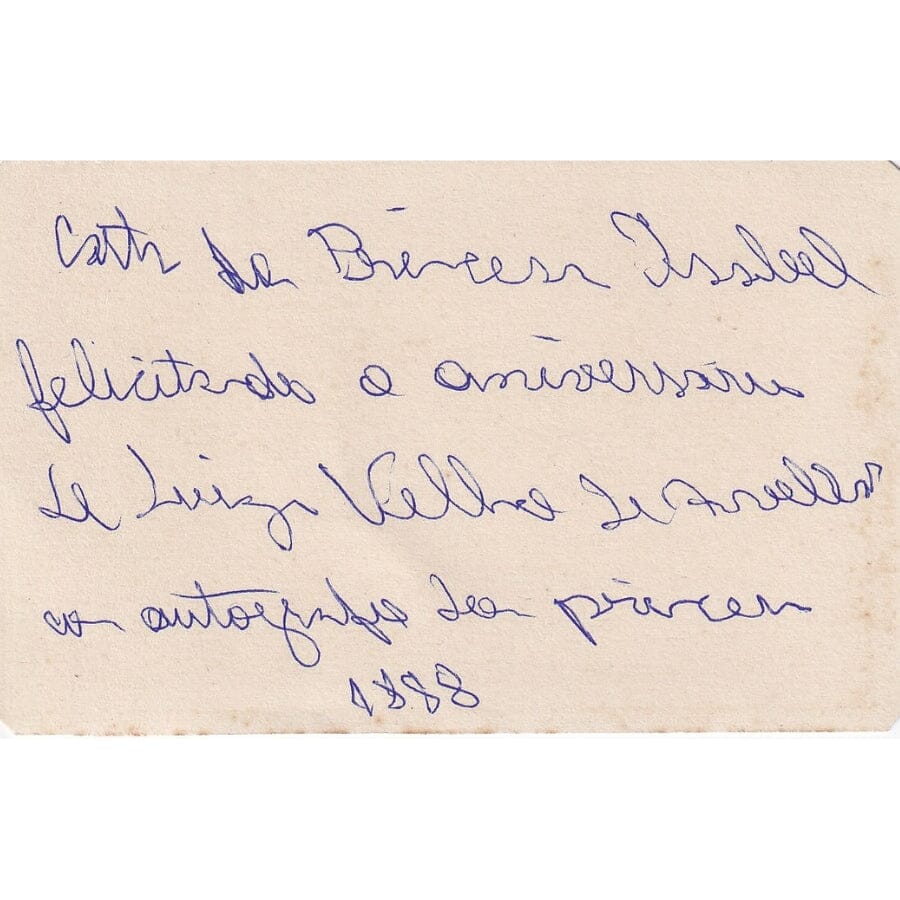 Carta da Princesa Issabel
felicitando o aniversário
de Luiza Velho de Avellar
com autografo da princesa
1888